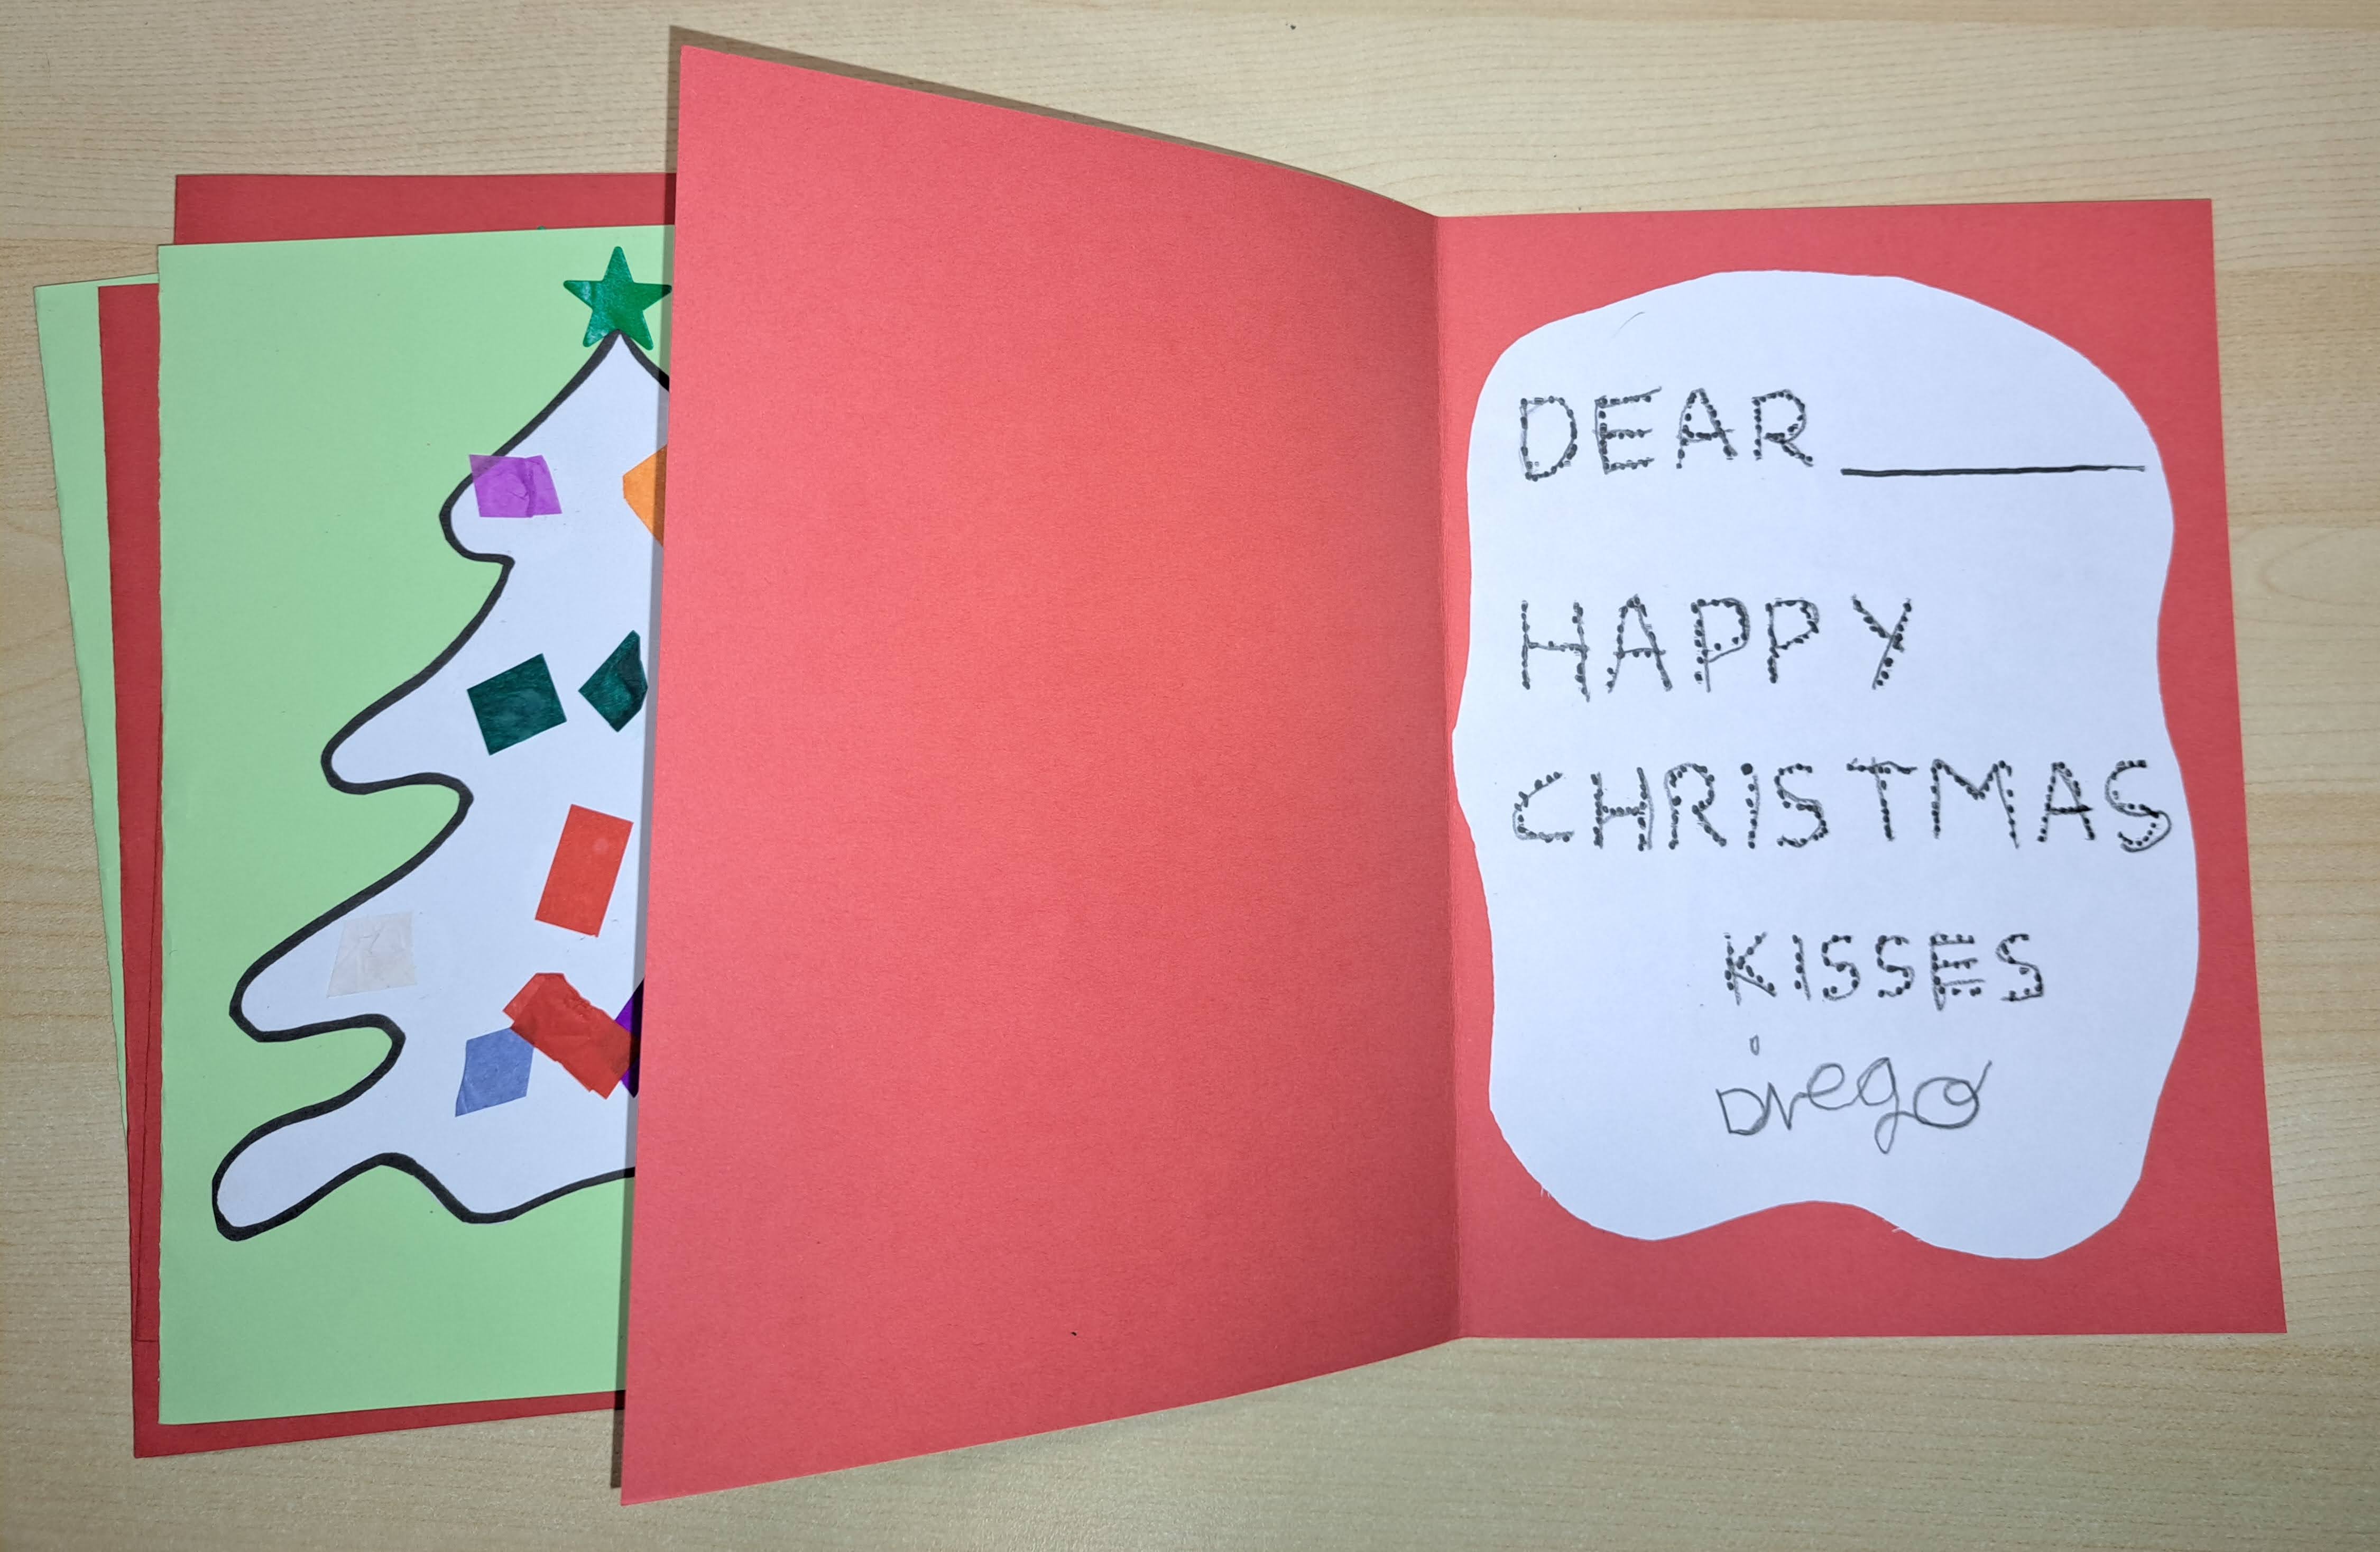 DEAR ________
HAPPY
CHRISTMAS
KISSES
Diego